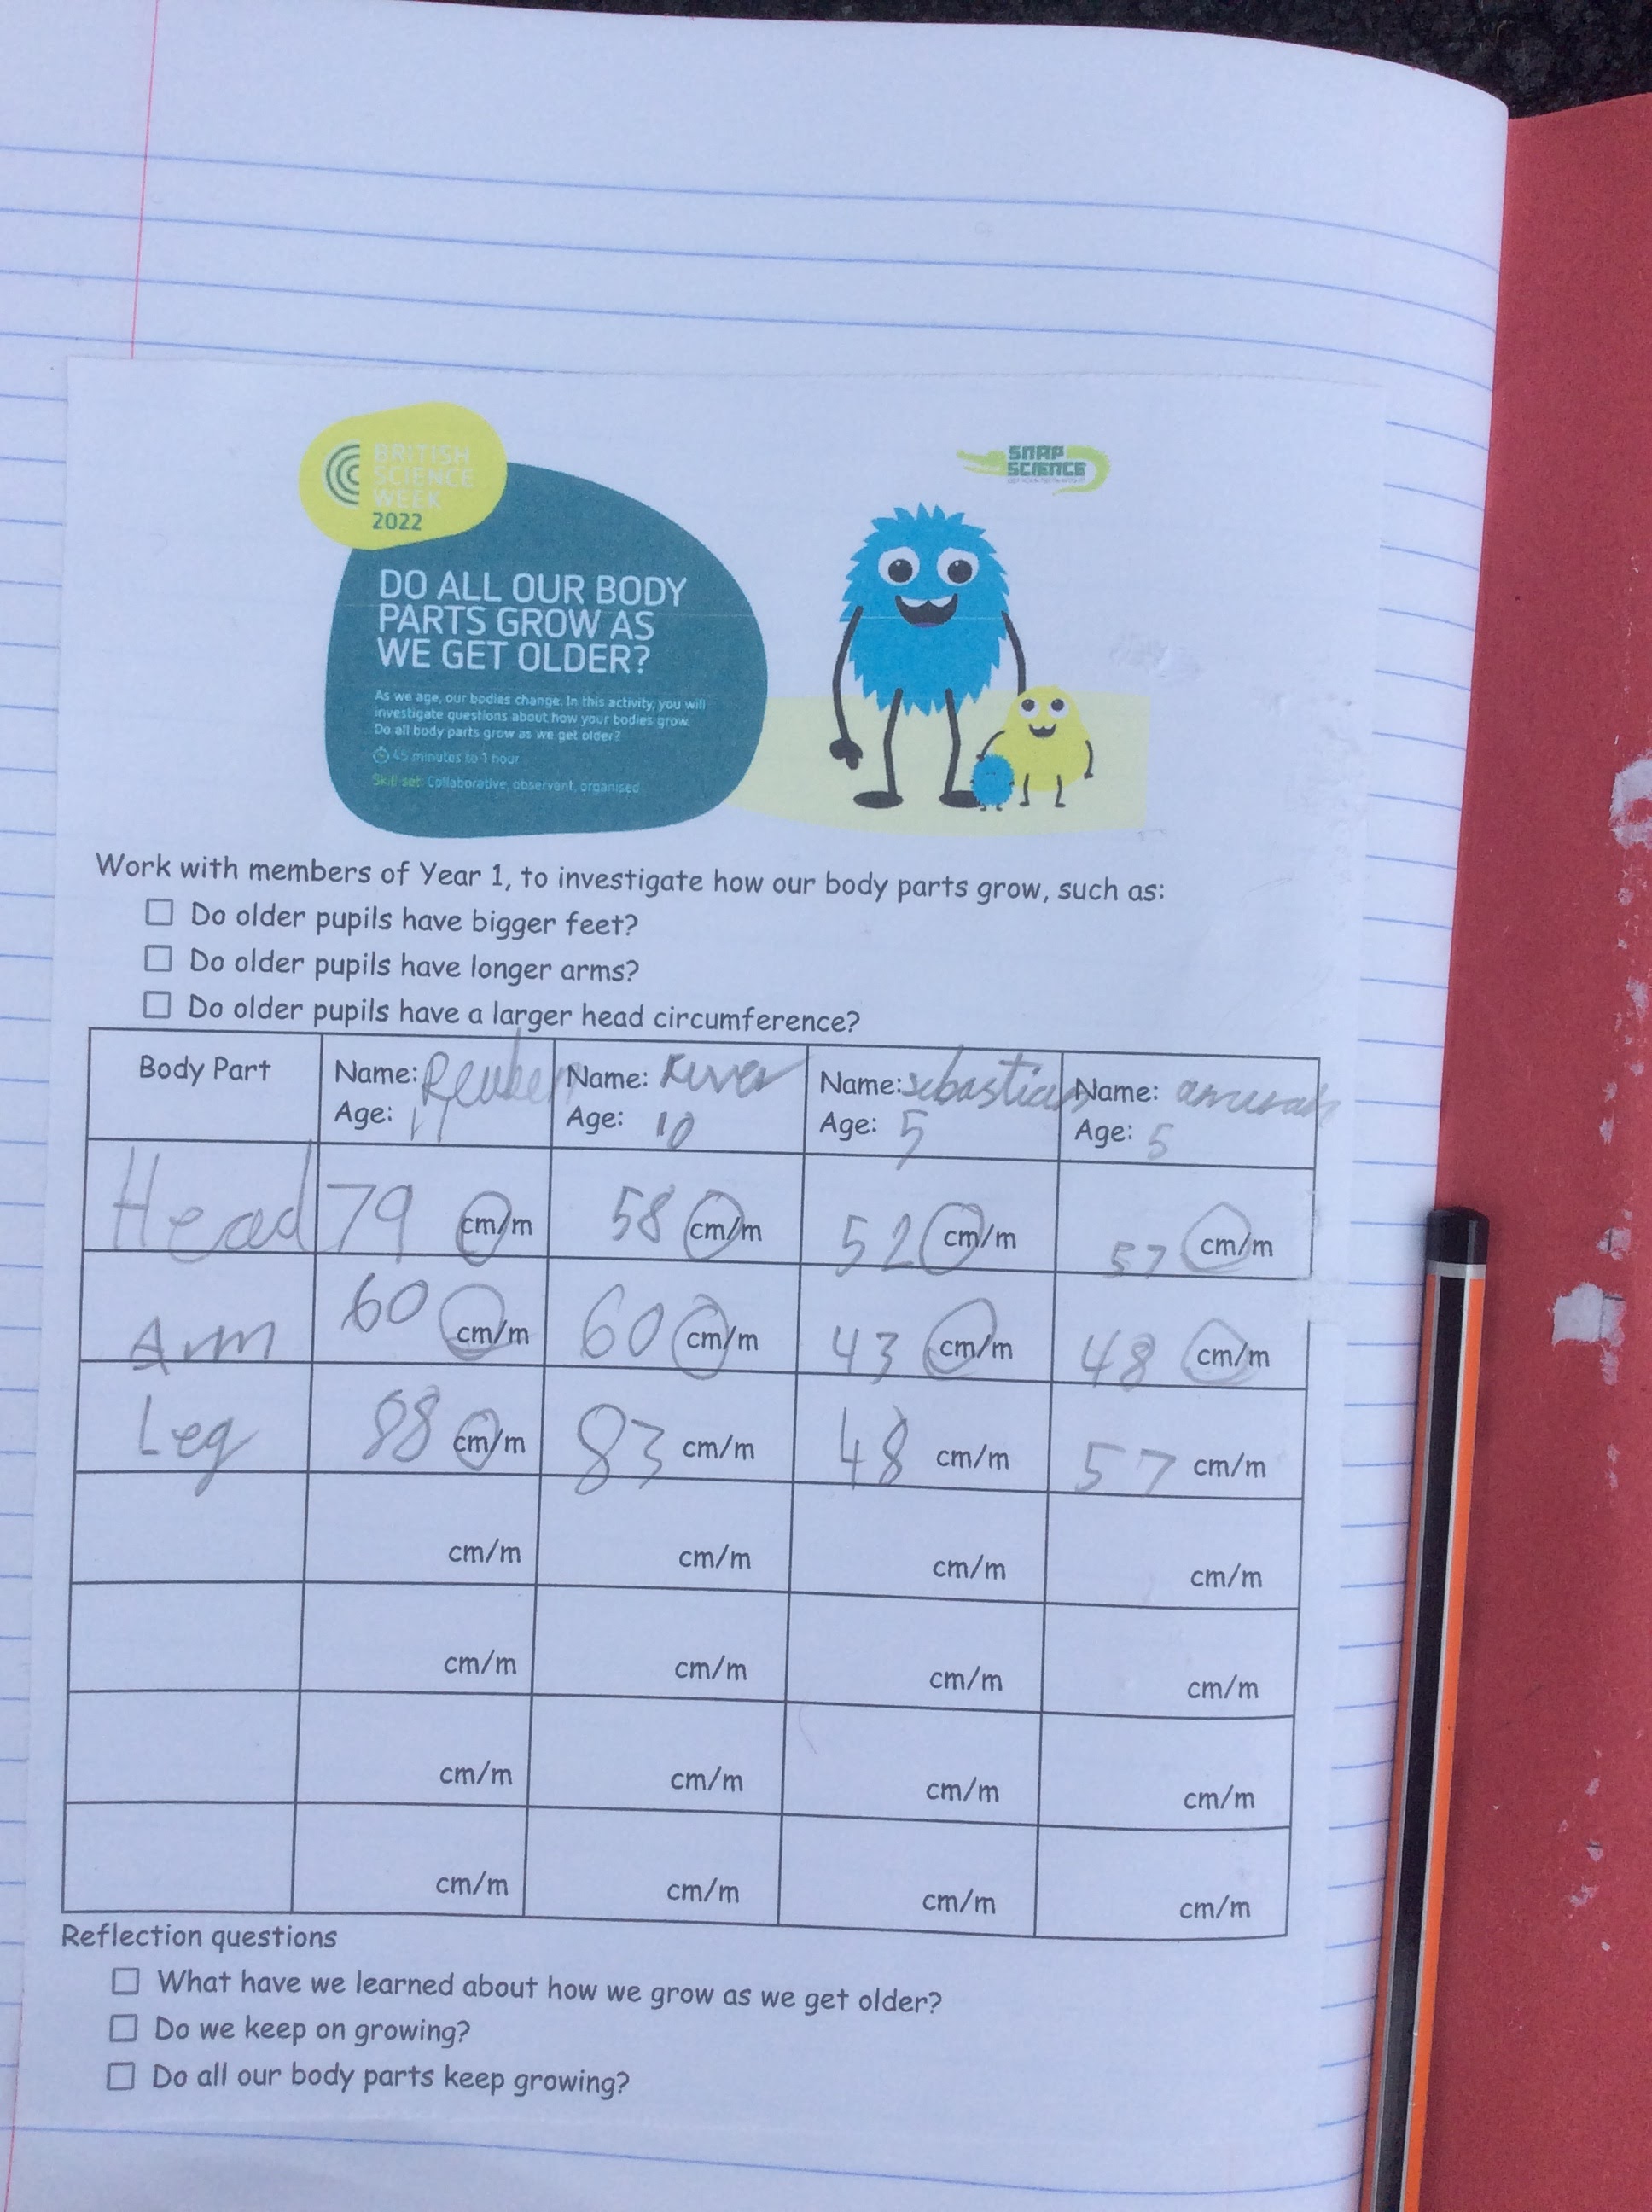 BRITISH
SCIENCE
WEEK
2022
SNAP
SCIENCE
DO ALL OUR BODY
PARTS GROW AS
WE GET OLDER?
As we age, our bodies change. In this activity, you will
investigate questions about how your bodies grow.
Do all body parts grow as we get older?
45 minutes to 1 hour
Skill set: Collaborative, observant, organised
Work with members of Year 1, to investigate how our body parts grow, such as:
Do older pupils have bigger feet?
Do older pupils have longer arms?
Do older pupils have a larger head circumference?
Body Part Name: Reuben Name: River Name: sebastian Name:
Age: 11 Age: 10 Age: 5 Age: 5
Head 79 cm/m 58 cm/m 52 cm/m 57 cm/m
Arm 60 cm/m 60 cm/m 43 cm/m 48 cm/m
Leg 88 cm/m 83 cm/m 48 cm/m 57 cm/m
cm/m cm/m cm/m cm/m
cm/m cm/m cm/m cm/m
cm/m cm/m cm/m cm/m
cm/m cm/m cm/m cm/m
Reflection questions
What have we learned about how we grow as we get older?
Do we keep on growing?
Do all our body parts keep growing?